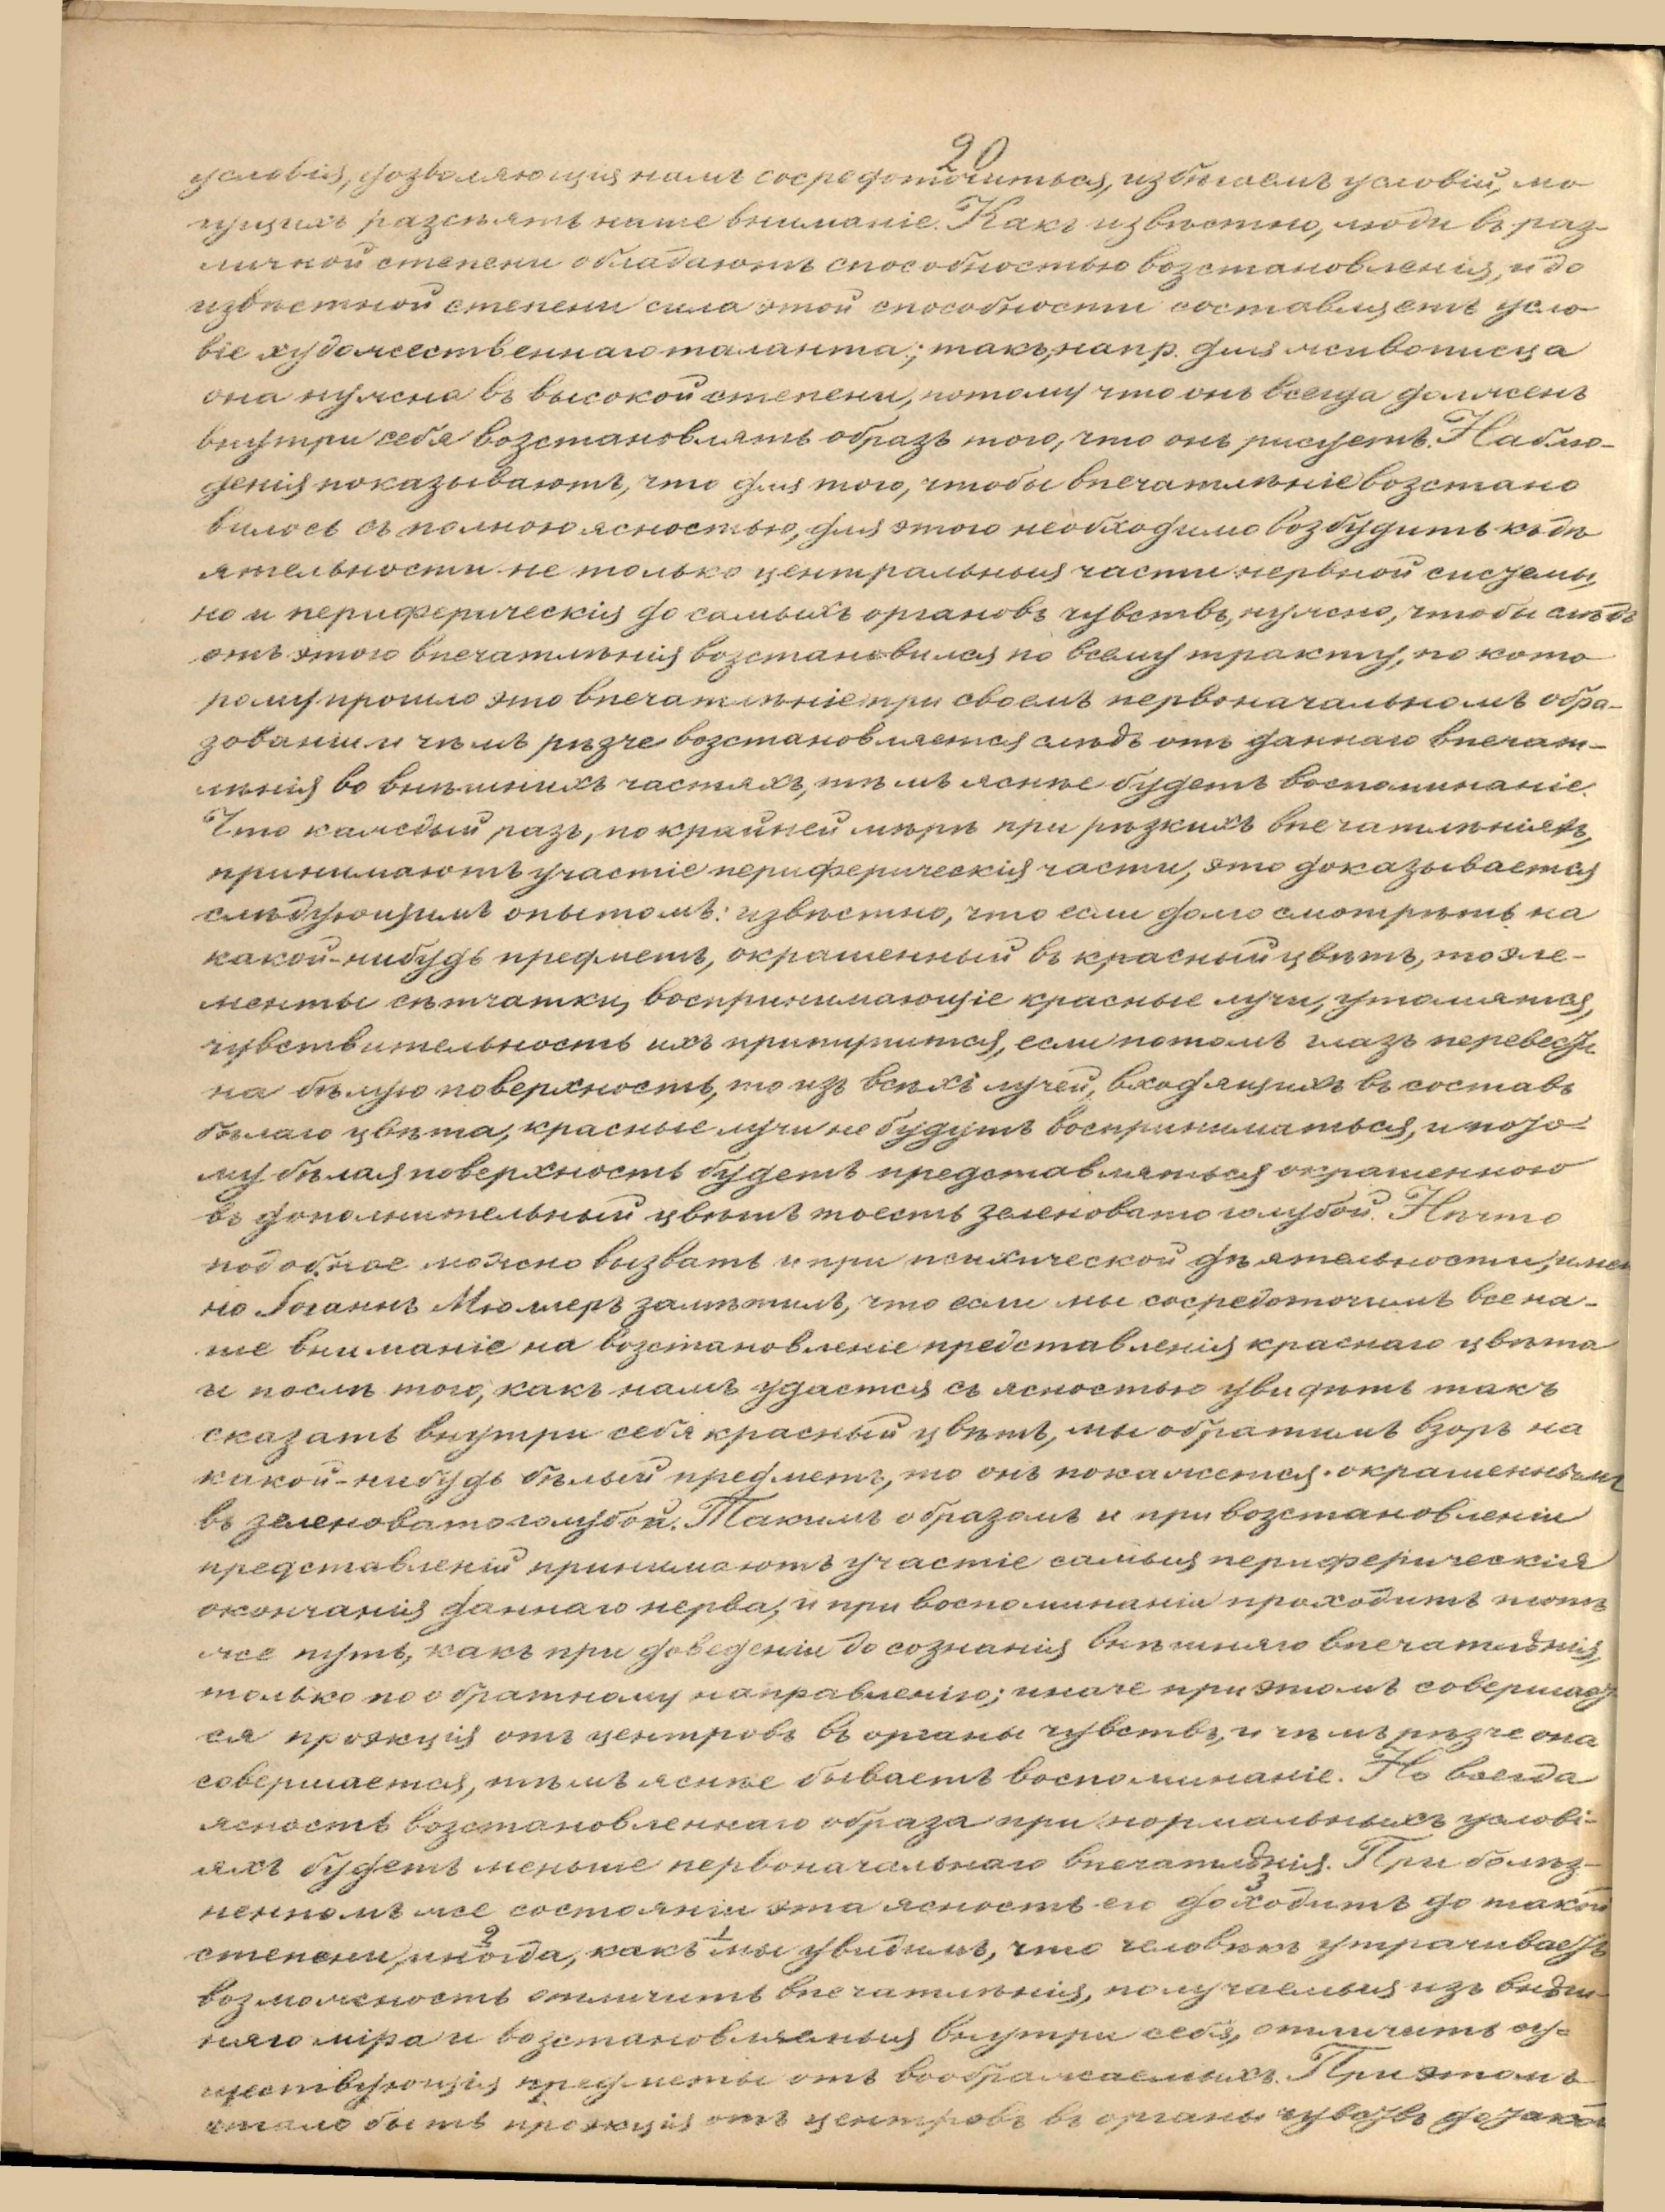 20
условія, дозволяющія намъ сосредоточиться, избѣгаемъ условій, мо
гущихъ разсѣять наше вниманіе. Какъ извѣстно, люди въ раз-
личной степени обладаютъ способностью возстановленія, и до
извѣстной степени сила этой способности составляетъ усло
віе художественнаго таланта; такъ, напр. для живописца
она нужна въ высокой степени, потому что онъ всегда долженъ
внутри себя возстановлять образъ того, что онъ рисуетъ. Наблю-
денія показываютъ, что для того, чтобы впечатлѣніе возстано
вилось съ полною ясностью, для этого необходимо возбудить къ дѣ
ятельности не только центральныя части нервной системы,
но и периферическія до самыхъ органовъ чувствъ, нужно, чтобы слѣдъ
отъ этого впечатлѣнія возстановился по всему тракту, по кото
рому прошло это впечатлѣніе при своемъ первоначальномъ обра-
зованіи и чѣмъ рѣзче возстановляется слѣдъ отъ даннаго впечат-
лѣнія во внѣшнихъ частяхъ, тѣмъ яснѣе будетъ воспоминаніе.
Что каждый разъ, по крайней мѣрѣ при рѣзкихъ впечатлѣніяхъ,
принимаютъ участіе периферическія части, это доказывается
слѣдующимъ опытомъ: извѣстно, что если долго смотрѣть на
какой-нибудь предметъ, окрашенный въ красный цвѣтъ, то эле-
менты сѣтчатки, воспринимающіе красные лучи, утомятся,
чувствительность ихъ притупится, если потомъ глазъ перевести
на бѣлую поверхность, то изъ всѣхъ лучей, входящихъ въ составъ
бѣлаго цвѣта, красные лучи не будутъ восприниматься, и пото
му бѣлая поверхность будетъ представляться окрашенною
въ дополнительный цвѣтъ тоесть зеленовато голубой. Нѣчто
подобное можно вызвать и при психической дѣятельности, имен
но Іоганнъ Мюллеръ замѣтилъ, что если мы сосредоточимъ все на-
ше вниманіе на возстановленіе представленія краснаго цвѣта
и послѣ того, какъ намъ удастся съ ясностью увидѣть такъ
сказать внутри себя красный цвѣтъ, мы обратимъ взоръ на
какой-нибудь бѣлый предметъ, то онъ покажется окрашеннымъ
въ зеленоватоголубой. Такимъ образомъ и при возстановленіи
представленій принимаютъ участіе самыя периферическія
окончанія даннаго нерва, и при воспоминаніи проходитъ тотъ
же путь, какъ при доведеніи до сознанія внѣшняго впечатлѣнія,
только по обратному направленію; иначе при этомъ совершает
ся проэкція отъ центровъ въ органы чувствъ, и чѣмъ рѣзче она
совершается, тѣмъ яснѣе бываетъ воспоминаніе. Но всегда
ясность возстановленнаго образа при нормальныхъ услові-
яхъ будетъ меньше первоначальнаго впечатлѣнія. При болѣз-
ненномъ же состояніи эта ясность его доходитъ до такой
степени, иногда, какъ мы увидимъ, что человѣкъ утрачиваетъ
возможность отличить впечатлѣнія, получаемыя изъ внѣш-
няго міра и возстановляемыя внутри себя, отличить су-
ществующія предметы отъ воображаемыхъ. При этомъ
стало быть проэкція отъ центровъ въ органы чувствъ до такой